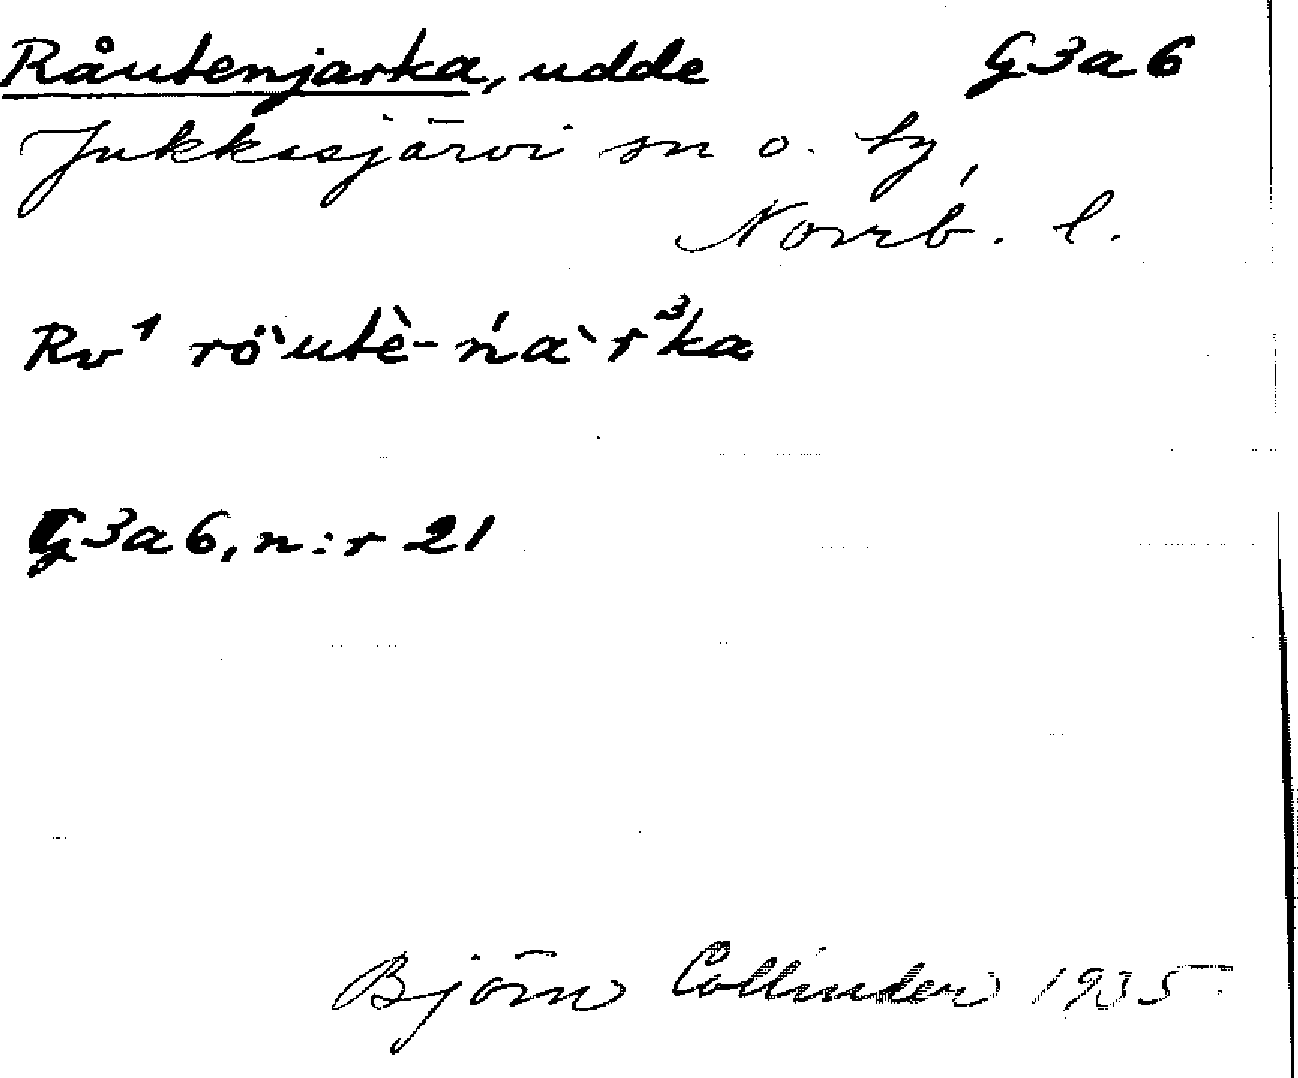 Råutenjarka, udde G3a6
Jukkasjärvi sn o. by,
Norrb. l.
Rv¹ rö̀utè-ńa`r³ka
G3a6, n:r 21
Björn Collinder 1935